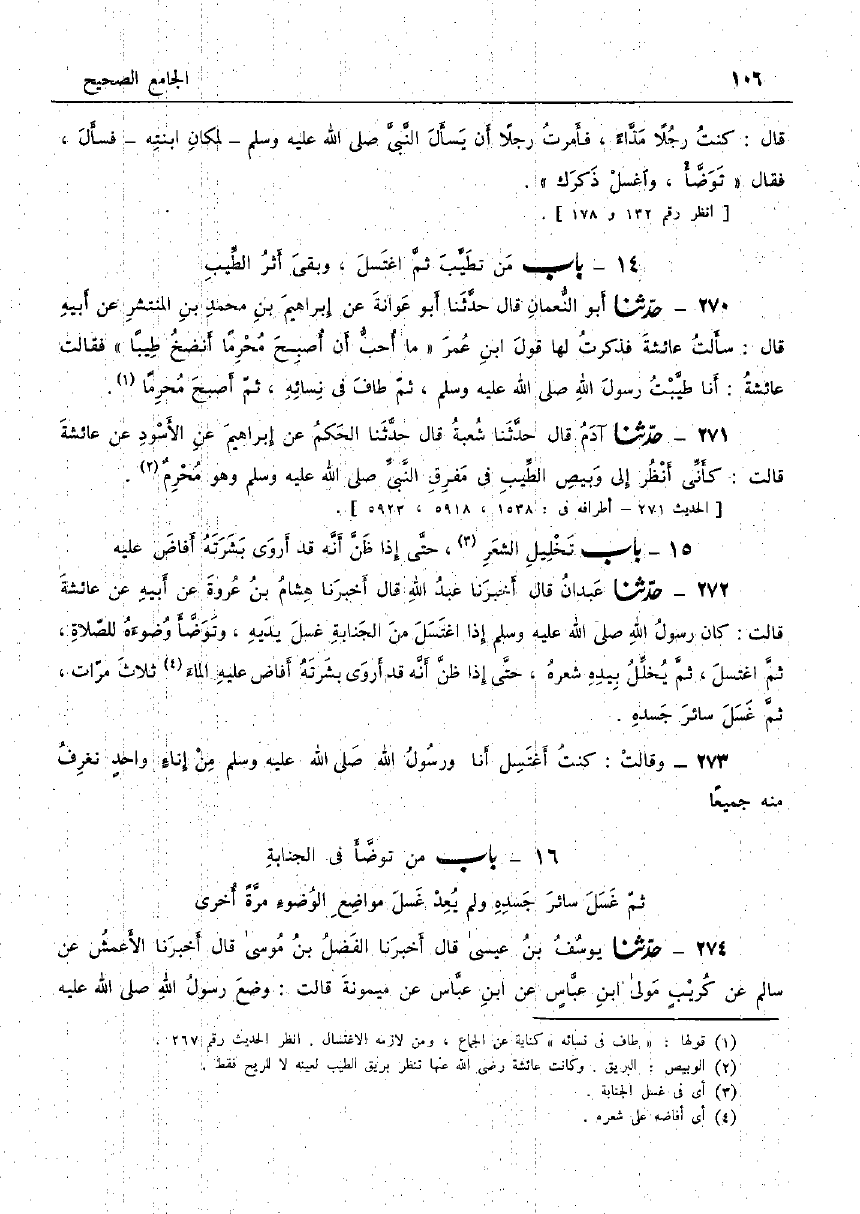 ١٠٦ الجامع الصحيح
قال : كنتُ رجُلًا مَذَّاءً ، فأمرتُ رجلًا أن يَسأَلَ النَّبيَّ صلى الله عليه وسلم – لمكانِ ابنتِه – فسألَ ،
فقال « تَوَضَّأْ ، واَغسلْ ذَكرَك » .
[ انظر رقم ١٣٢ و ١٧٨ ] .
١٤ – باب مَن تطَيَّبَ ثمَّ اغتَسلَ ، وبقىَ أَثرُ الطِّيبِ
٢٧٠ – حدّثنا أبو النُّعمانِ قال حدَّثَنا أبو عَوانةَ عن إبراهيمَ بنِ محمدِ بنِ المنتشرِ عن أَبيهِ
قال : سألتُ عائشةَ فذكرتُ لها قولَ ابنِ عُمرَ « ما أُحبُّ أن أُصبِحَ مُحْرِمًا أَنضَخُ طِيبًا » فقالت
عائشةُ : أَنا طيَّبْتُ رسولَ اللهِ صلى الله عليه وسلم ، ثمّ طافَ فى نِسائهِ ، ثمّ أَصبحَ مُحرِمًا (١) .
٢٧١ – حدّثنا آدَمُ قال حدَّثَنا شُعبةُ قال حدَّثَنا الحَكمُ عن إبراهيمَ عنِ الأَسْودِ عن عائشةَ
قالت : كأَنِّى أَنْظُر إلى وَبيصِ الطِّيبِ فى مَفرِقِ النَّبيِّ صلى الله عليه وسلم وهو مُحْرِمٌ (٢) .
[ الحديث ٢٧١ – أطرافه فى : ١٥٣٨ ، ٥٩١٨ ، ٥٩٢٣ ] .
١٥ – باب تَخْليلِ الشعَرِ (٣) ، حتَّى إذا ظَنَّ أَنَّه قد أروَى بَشَرَتَهُ أَفاضَ عليه
٢٧٢ – حدّثنا عَبدانُ قال أَخبرَنا عبدُ اللهِ قال أَخبرَنا هِشامُ بنُ عُروةَ عن أبيهِ عن عائشةَ
قالت : كان رسولُ اللهِ صلى الله عليه وسلم إذا اغتَسَلَ منَ الجَنابةِ غسلَ يدَيهِ ، وتَوَضَّأَ وُضوءَهُ للصَّلاةِ ،
ثمَّ اغتسلَ ، ثمَّ يُخلِّلُ بيدِهِ شعرهُ ، حتَّى إذا ظنَّ أَنَّه قد أروَى بشَرتَهُ أَفاضَ عليهِ الماءَ (٤) ثلاثَ مرّات ،
ثمَّ غَسَلَ سائرَ جَسدهِ .
٢٧٣ – وقالتْ : كنتُ أَغتَسِل أَنا ورسُولُ الله صَلى الله عليه وسلم مِنْ إناءٍ واحدٍ نَغرِفُ
منه جميعًا
١٦ – باب من توضَّأَ فى الجنابةِ
ثمّ غَسَلَ سائرَ جَسدِهِ ولم يُعِدْ غَسلَ مواضِعِ الوُضوءِ مرَّةً أُخرى
٢٧٤ – حدّثنا يوسُفُ بنُ عيسىٰ قال أَخبرَنا الفَضلُ بنُ مُوسىٰ قال أَخبرَنا الأَعمشُ عن
سالم عن كُرَيْبٍ مَولىٰ ابنِ عبَّاسٍ عن ابنِ عبَّاس عن ميمونةَ قالت : وضعَ رسولُ اللهِ صلى الله عليه
(١) قولها : « طاف فى نسائه » كناية عن الجماع ، ومن لازمه الاغتسال . انظر الحديث رقم ٢٦٧ .
(٢) الوبيص : البريق . وكانت عائشة رضى الله عنها تنظر بريق الطيب لعينه لا للريح فقط .
(٣) أى فى غسل الجنابة .
(٤) أى أفاضه على شعره .